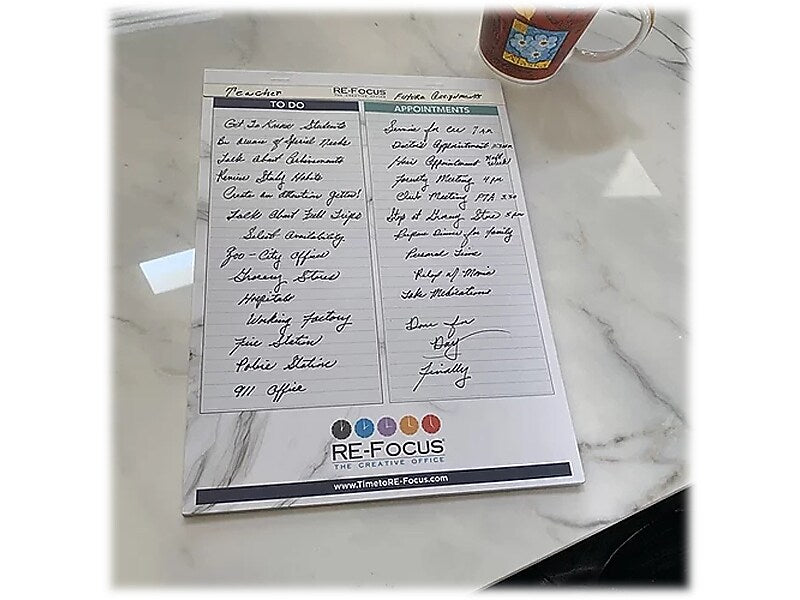 Teacher
RE-FOCUS
THE CREATIVE OFFICE
Future Assignments
TO DO
Get To Know Students
Be Aware of Special Needs
Talk About Achievements
Revise Study Habits
Create an attention getter!
Talk About Full Trips
Select Availability
Zoo - City Office
Grocery Stores
Hospitals
Working Factory
Fire Station
Police Station
911 Office
APPOINTMENTS
Service for car 7 am
Doctor Appointment
Hair Appointment Next Week!
Faculty Meeting 4 pm
Club Meeting PTA 3:30
Stop at Grocery Store 5 pm
Prepare Dinner for family
Personal Time
Relax w/ Movie
Take Medications
Done for
Day
Finally
RE-FOCUS
THE CREATIVE OFFICE
www.TimetoRE-Focus.com